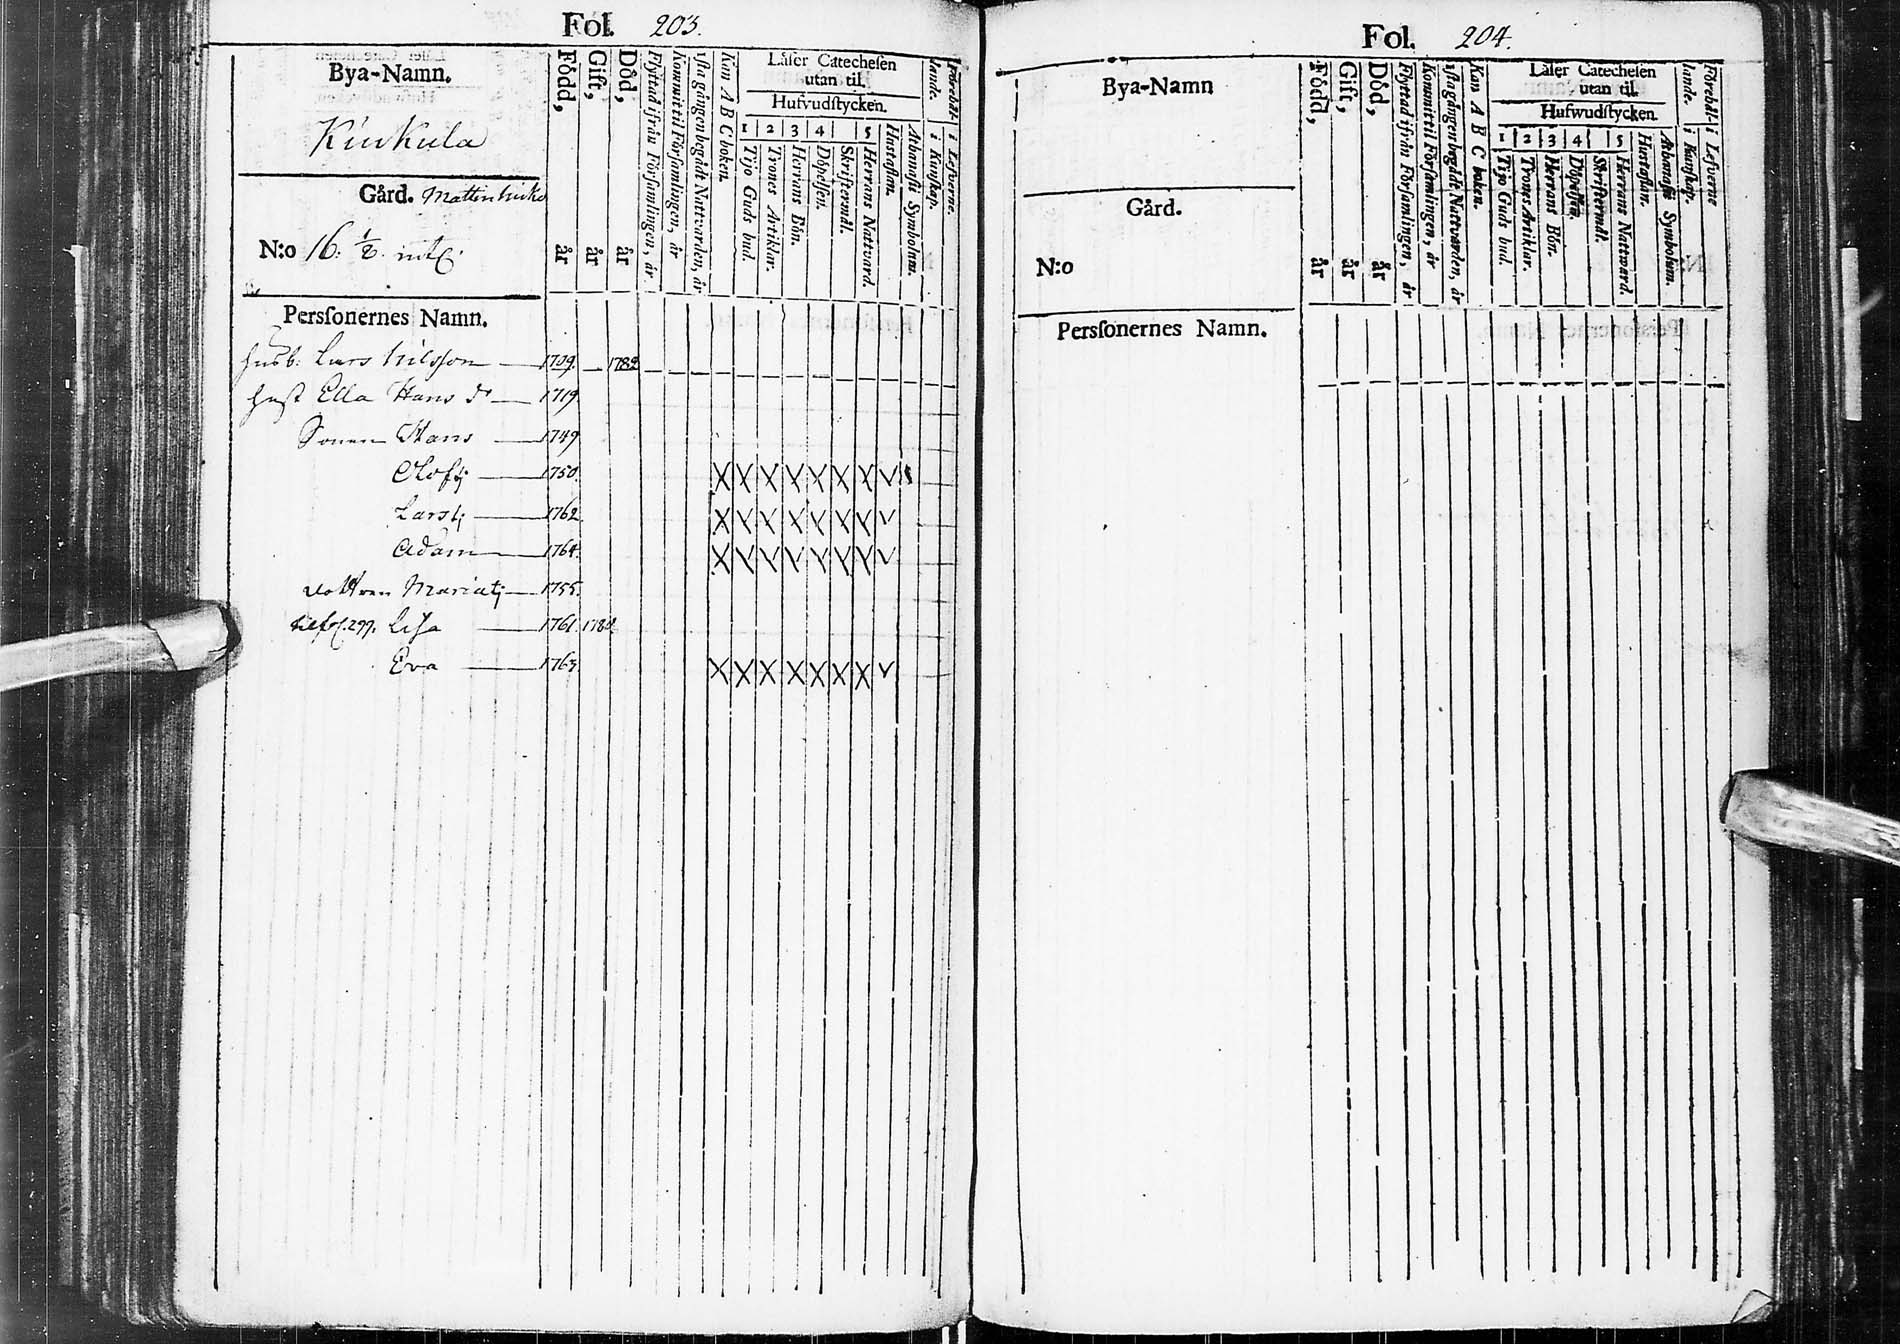 Fol. 203.
Bya-Namn.
Kinkula
Gård.
N:o 16. 1/2.
Född, år
Gift, år
Död, år
Flyttad ifrån Församlingen, år
Kommit til Församlingen, år
1sta gången begådt Nattvarden, år
Kan A B C boken.
Läser Catechesen
utan til.
Hufvudstycken.
1 2 3 4 5
Tijo Guds bud.
Trones Artiklar.
Herrans Bön.
Döpelsen.
Skriftermål.
Herrans Nattvard.
Hustaflan.
Athanasii Symbolum.
Förebål-
lande.
i Kunskap.
i Lefverne.
Perssonernes Namn.
husb: Lars Nilsson 1709. 1782
hust Ella Hans dr 1719
Sonen Hans 1749
Olof 1750.
Lars 1762
Adam 1764.
dottren Maria 1755.
til fol. 299. Lisa 1761.
Eva 1763.
Fol. 204.
Bya-Namn
Gård.
N:o
Född, år
Gift, år
Död, år
Flyttad ifrån Församlingen, år
Kommit til Församlingen, år
1sta gången begådt Nattvarden, år
Kan A B C boken.
Läser Catechesen
utan til.
Hufwudstycken.
1 2 3 4 5
Tijo Guds bud.
Trones Artiklar.
Herrans Bön.
Döpelsen.
Skriftermål.
Herrans Nattvard.
Hustaflan.
Athanasii Symbolum.
Förebål-
lande.
i Kunskap.
i Lefverne
Perssonernes Namn.